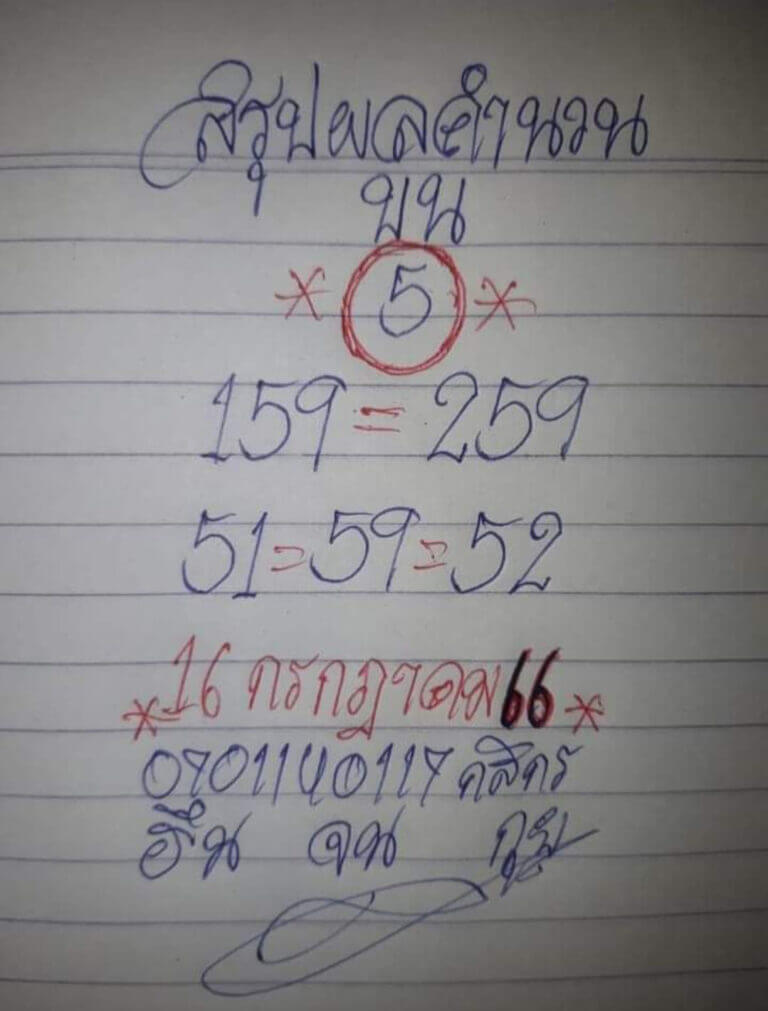 สรุปผลคำนวน
บน
* 5 *
159 = 259
51 = 59 = 52
* 16 กรกฎาคม 66 *
0701140117 กสิกร
จน